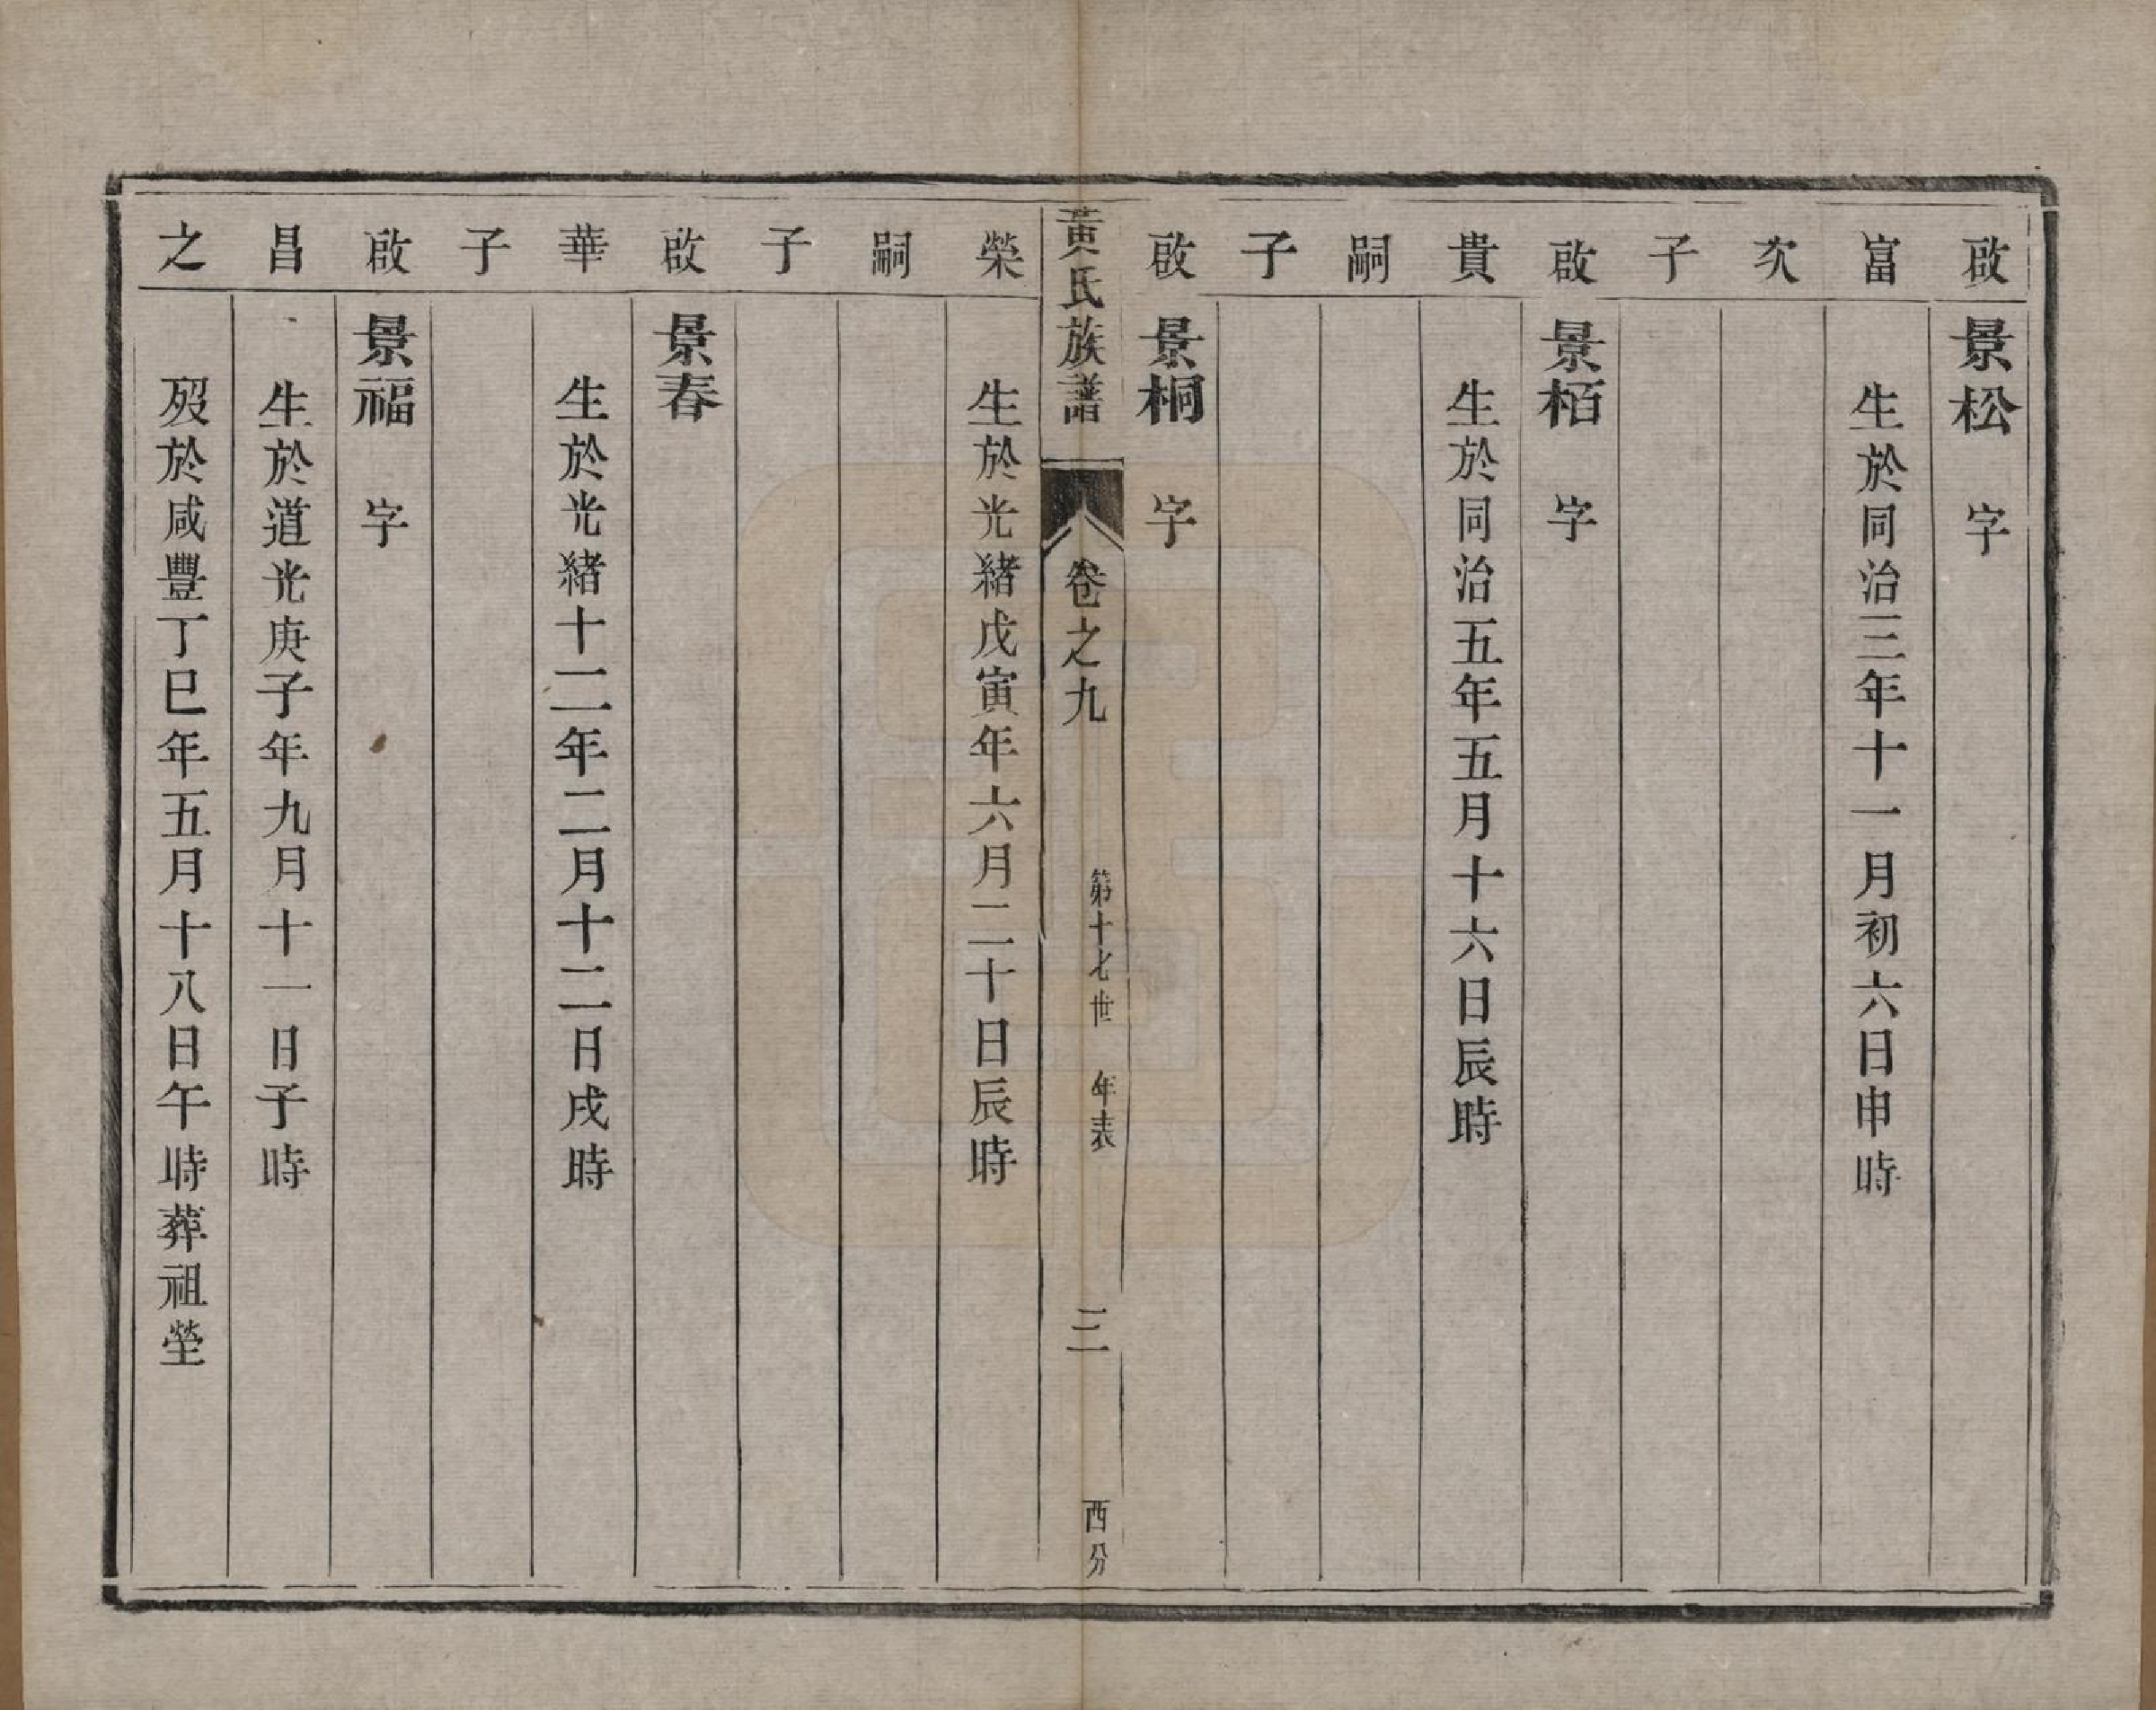 啟 景松 字
富 生於同治三年十一月初六日申時
次
子
啟 景栢 字
貴 生於同治五年五月十六日辰時
嗣
子
啟 景桐 字
黃氏族譜 卷之九 第十七世 年表 三 西分
榮 生於光緒戊寅年六月二十日辰時
嗣
子
啟 景春
華 生於光緒十二年二月十二日戌時
子
啟 景福 字
昌 生於道光庚子年九月十一日子時
之 歿於咸豐丁巳年五月十八日午時葬祖塋